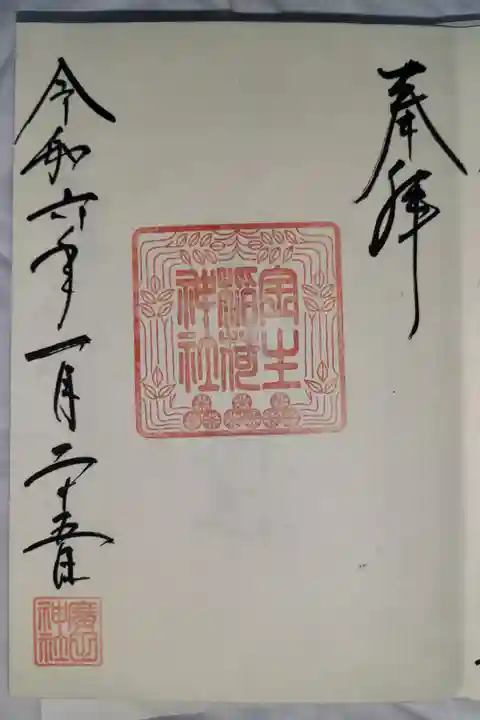 奉拝
金生
稲荷
神社
令和六年一月二十五日
廣田
神社